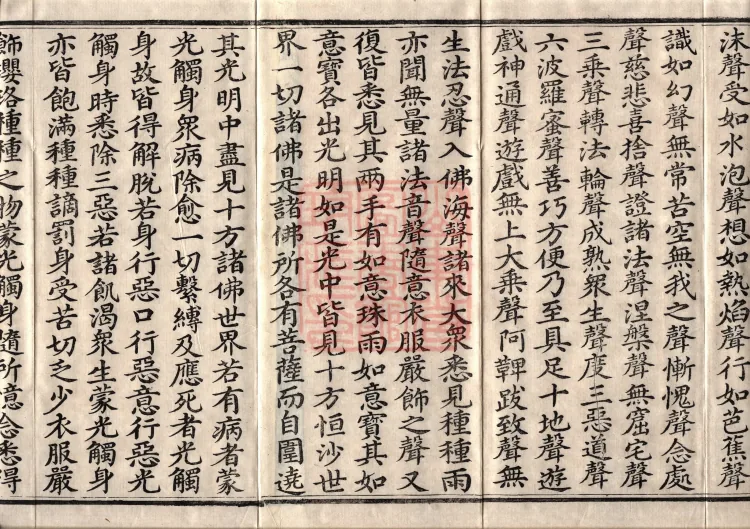 沫聲受如水泡聲想如熱焰聲行如芭蕉聲
識如幻聲無常苦空無我之聲慚愧聲念處
聲慈悲喜捨聲證諸法聲涅槃聲無窟宅聲
三乘聲轉法輪聲成熟衆生聲度三惡道聲
六波羅蜜聲善巧方便乃至具足十地聲遊
戲神通聲遊戲無上大乘聲阿鞞跋致聲無
生法忍聲入佛海聲諸來大衆悉見種種雨
亦聞無量諸法音聲隨意衣服嚴飾之聲又
復皆悉見其兩手有如意珠雨如意寶其如
意寶各出光明如是光中皆見十方恒沙世
界一切諸佛是諸佛所各有菩薩而自圍遶
其光明中盡見十方諸佛世界若有病者蒙
光觸身衆病除愈一切繫縛及應死者光觸
身故皆得解脫若身行惡口行惡意行惡光
觸身時悉除三惡若諸飢渴衆生蒙光觸身
亦皆飽滿種種謫罰身受苦切乏少衣服嚴
飾瓔珞種種之物蒙光觸身隨所意念悉得